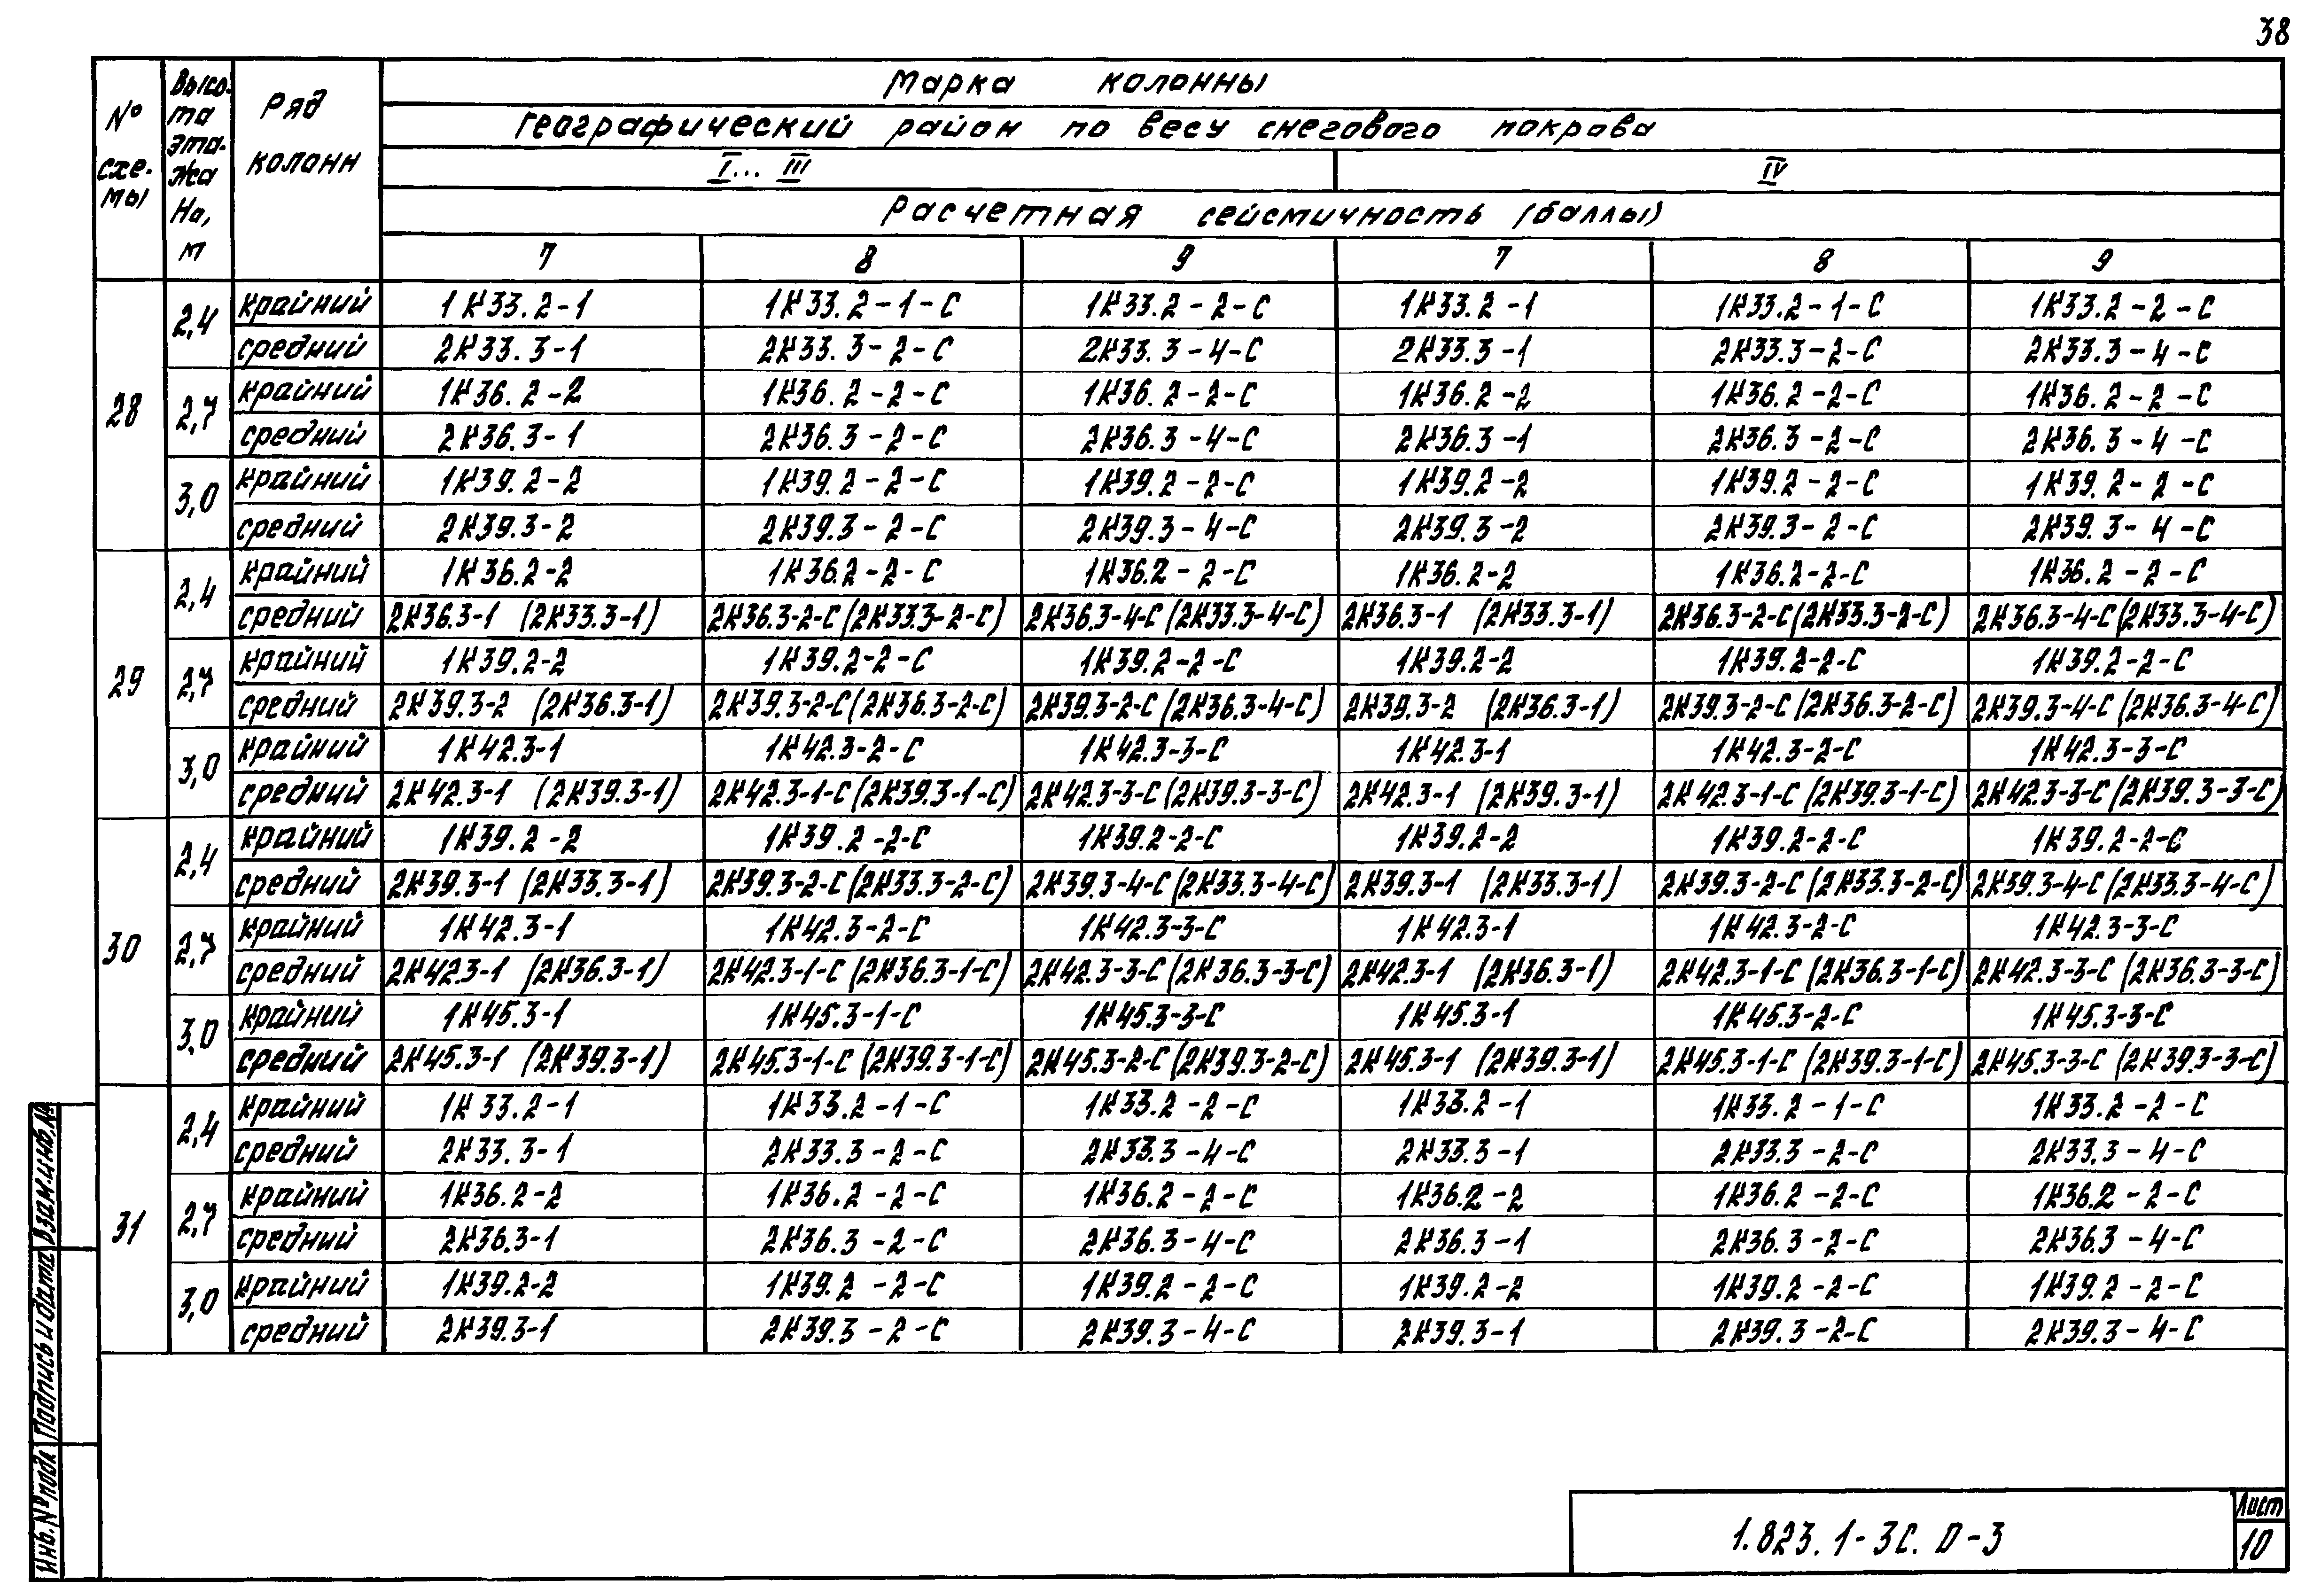 38
№ схемы
Высота этажа Но, м
Ряд колонн
Марка колонны
Географический район по весу снегового покрова
I... III IV
Расчетная сейсмичность (баллы)
7 8 9 7 8 9
28
2,4 крайний 1К33.2-1 1К33.2-1-С 1К33.2-2-С 1К33.2-1 1К33.2-1-С 1К33.2-2-С
средний 2К33.3-1 2К33.3-2-С 2К33.3-4-С 2К33.3-1 2К33.3-2-С 2К33.3-4-С
2,7 крайний 1К36.2-2 1К36.2-2-С 1К36.2-2-С 1К36.2-2 1К36.2-2-С 1К36.2-2-С
средний 2К36.3-1 2К36.3-2-С 2К36.3-4-С 2К36.3-1 2К36.3-2-С 2К36.3-4-С
3,0 крайний 1К39.2-2 1К39.2-2-С 1К39.2-2-С 1К39.2-2 1К39.2-2-С 1К39.2-2-С
средний 2К39.3-2 2К39.3-2-С 2К39.3-4-С 2К39.3-2 2К39.3-2-С 2К39.3-4-С
29
2,4 крайний 1К36.2-2 1К36.2-2-С 1К36.2-2-С 1К36.2-2 1К36.2-2-С 1К36.2-2-С
средний 2К36.3-1 (2К33.3-1) 2К36.3-2-С (2К33.3-2-С) 2К36.3-4-С (2К33.3-4-С) 2К36.3-1 (2К33.3-1) 2К36.3-2-С (2К33.3-2-С) 2К36.3-4-С (2К33.3-4-С)
2,7 крайний 1К39.2-2 1К39.2-2-С 1К39.2-2-С 1К39.2-2 1К39.2-2-С 1К39.2-2-С
средний 2К39.3-2 (2К36.3-1) 2К39.3-2-С (2К36.3-2-С) 2К39.3-2-С (2К36.3-4-С) 2К39.3-2 (2К36.3-1) 2К39.3-2-С (2К36.3-2-С) 2К39.3-4-С (2К36.3-4-С)
3,0 крайний 1К42.3-1 1К42.3-2-С 1К42.3-3-С 1К42.3-1 1К42.3-2-С 1К42.3-3-С
средний 2К42.3-1 (2К39.3-1) 2К42.3-1-С (2К39.3-1-С) 2К42.3-3-С (2К39.3-3-С) 2К42.3-1 (2К39.3-1) 2К42.3-1-С (2К39.3-1-С) 2К42.3-3-С (2К39.3-3-С)
30
2,4 крайний 1К39.2-2 1К39.2-2-С 1К39.2-2-С 1К39.2-2 1К39.2-2-С 1К39.2-2-С
средний 2К39.3-1 (2К33.3-1) 2К39.3-2-С (2К33.3-2-С) 2К39.3-4-С (2К33.3-4-С) 2К39.3-1 (2К33.3-1) 2К39.3-2-С (2К33.3-2-С) 2К39.3-4-С (2К33.3-4-С)
2,7 крайний 1К42.3-1 1К42.3-2-С 1К42.3-3-С 1К42.3-1 1К42.3-2-С 1К42.3-3-С
средний 2К42.3-1 (2К36.3-1) 2К42.3-1-С (2К36.3-1-С) 2К42.3-3-С (2К36.3-3-С) 2К42.3-1 (2К36.3-1) 2К42.3-1-С (2К36.3-1-С) 2К42.3-3-С (2К36.3-3-С)
3,0 крайний 1К45.3-1 1К45.3-1-С 1К45.3-3-С 1К45.3-1 1К45.3-2-С 1К45.3-3-С
средний 2К45.3-1 (2К39.3-1) 2К45.3-1-С (2К39.3-1-С) 2К45.3-2-С (2К39.3-2-С) 2К45.3-1 (2К39.3-1) 2К45.3-1-С (2К39.3-1-С) 2К45.3-3-С (2К39.3-3-С)
31
2,4 крайний 1К33.2-1 1К33.2-1-С 1К33.2-2-С 1К33.2-1 1К33.2-1-С 1К33.2-2-С
средний 2К33.3-1 2К33.3-2-С 2К33.3-4-С 2К33.3-1 2К33.3-2-С 2К33.3-4-С
2,7 крайний 1К36.2-2 1К36.2-2-С 1К36.2-2-С 1К36.2-2 1К36.2-2-С 1К36.2-2-С
средний 2К36.3-1 2К36.3-2-С 2К36.3-4-С 2К36.3-1 2К36.3-2-С 2К36.3-4-С
3,0 крайний 1К39.2-2 1К39.2-2-С 1К39.2-2-С 1К39.2-2 1К39.2-2-С 1К39.2-2-С
средний 2К39.3-1 2К39.3-2-С 2К39.3-4-С 2К39.3-1 2К39.3-2-С 2К39.3-4-С
Взам.инв.№
Подпись и дата
Инв.№подл
1.823.1-3С. 0-3
Лист
10